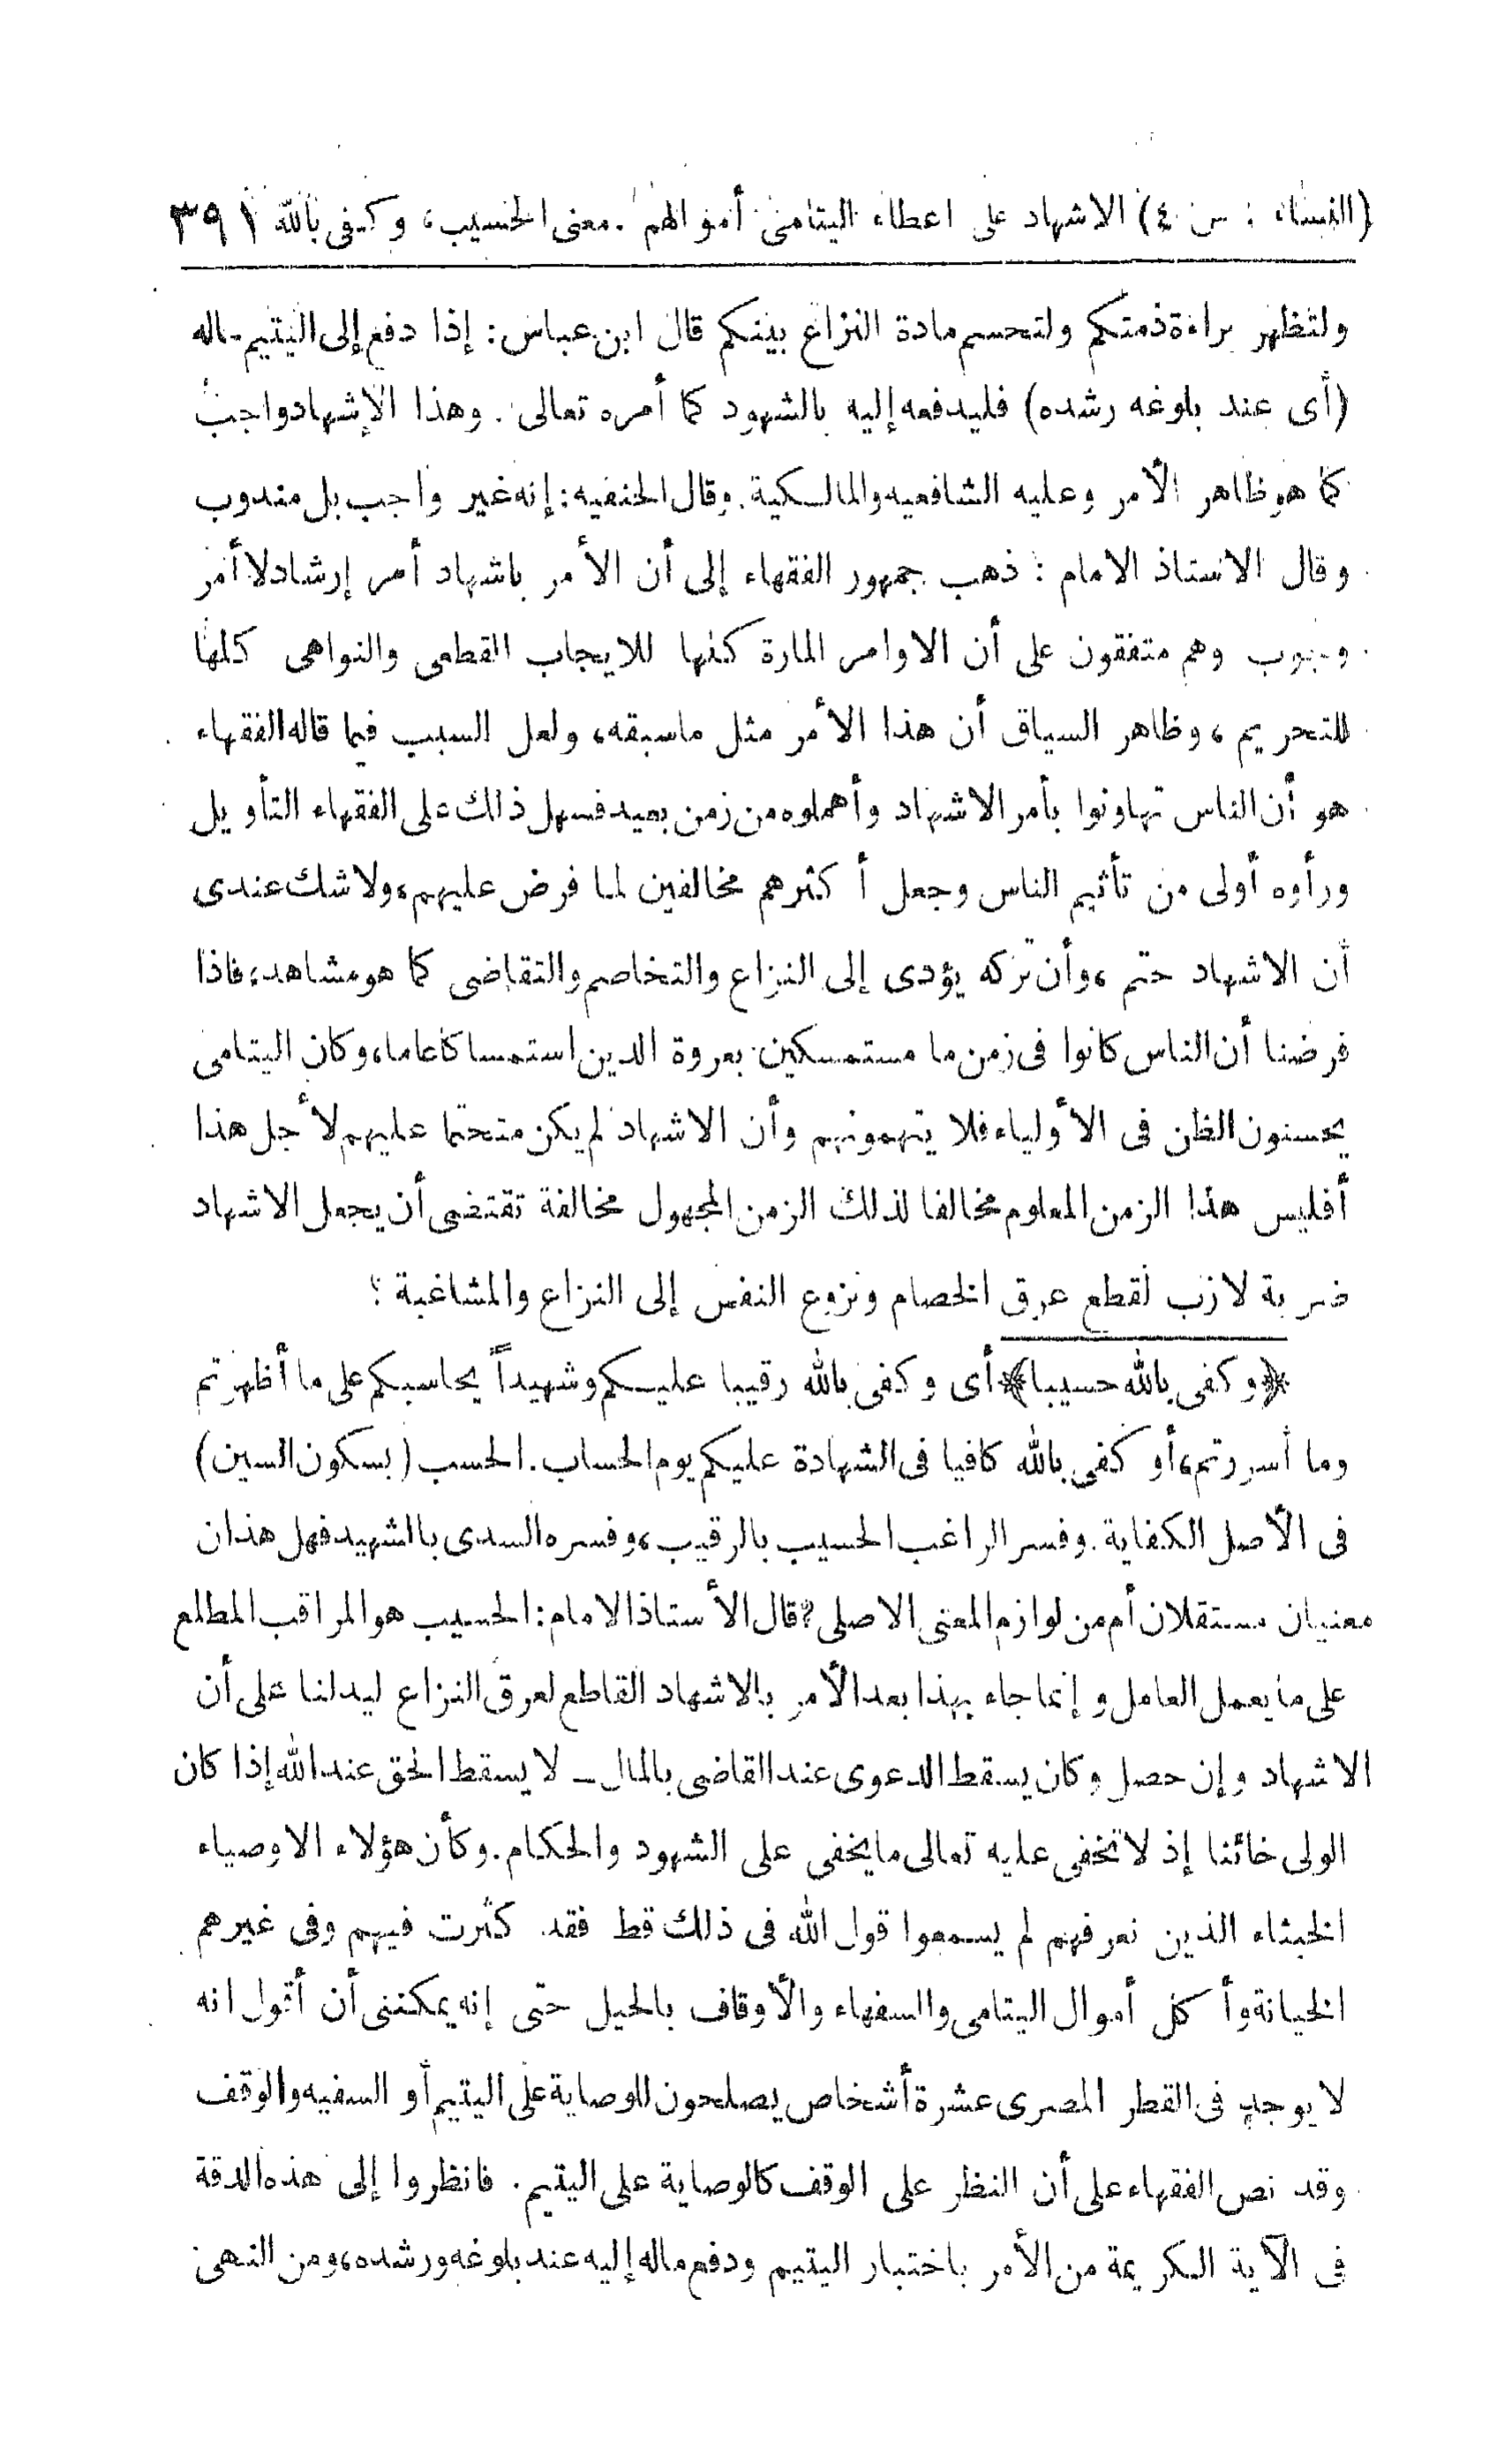 (النساء : س ٤) الاشهاد على اعطاء اليتامى أموالهم . معنى الحسيب ، وكفى بالله ٣٩١
ولتظهر براءة ذمتكم ولتحسم مادة النزاع بينكم قال ابن عباس : إذا دفع إلى اليتيم ماله
(أى عند بلوغه رشده) فليدفعه إليه بالشهود كما أمره تعالى . وهذا الإشهاد واجب
كما هو ظاهر الأمر وعليه الشافعيه والمالكية . وقال الحنفيه : إنه غير واجب بل مندوب
وقال الاستاذ الامام : ذهب جمهور الفقهاء إلى أن الأمر باشهاد أمر إرشاد لا أمر
وجوب وهم متفقون على أن الاوامر المارة كلها للايجاب القطعى والنواهى كلها
للتحريم ، وظاهر السياق أن هذا الأمر مثل ماسبقه ، ولعل السبب فيما قاله الفقهاء
هو أن الناس تهاونوا بأمر الاشهاد وأهملوه من زمن بعيد فسهل ذلك على الفقهاء التأويل
ورأوه أولى من تأثيم الناس وجعل أكثرهم مخالفين لما فرض عليهم ، ولا شك عندى
أن الاشهاد حتم ، وأن تركه يؤدى إلى النزاع والتخاصم والتقاضى كما هو مشاهد ، فاذا
فرضنا أن الناس كانوا فى زمن ما مستمسكين بعروة الدين استمساكا عاما ، وكان اليتامى
يحسنون الظن فى الأولياء فلا يتهمونهم وأن الاشهاد لم يكن متحتما عليهم لأجل هذا
أفليس هذا الزمن المعلوم مخالفا لذلك الزمن المجهول مخالفة تقتضى أن يجعل الاشهاد
ضربة لازب لقطع عرق الخصام ونزوع النفس إلى النزاع والمشاغبة ؟
﴿وكفى بالله حسيبا﴾ أى وكفى بالله رقيبا عليكم وشهيداً يحاسبكم على ما أظهرتم
وما أسررتم ، أو كفى بالله كافيا فى الشهادة عليكم يوم الحساب . الحسب (بسكون السين)
فى الأصل الكفاية . وفسر الراغب الحسيب بالرقيب ، وفسره السدى بالشهيد فهل هذان
معنيان مستقلان أم من لوازم المعنى الاصلى ؟ قال الأستاذ الامام : الحسيب هو المراقب المطلع
على ما يعمل العامل وإنما جاء بهذا بعد الأمر بالاشهاد القاطع لعرق النزاع ليدلنا على أن
الاشهاد وإن حصل وكان يسقط الدعوى عند القاضى بالمال ــ لا يسقط الحق عند الله إذا كان
الولى خائنا إذ لا تخفى عليه تعالى ما يخفى على الشهود والحكام . وكأن هؤلاء الاوصياء
الخبثاء الذين نعرفهم لم يسمعوا قول الله فى ذلك قط فقد كثرت فيهم وفى غيرهم
الخيانة وأكل أموال اليتامى والسفهاء والأوقاف بالحيل حتى إنه يمكننى أن أقول انه
لا يوجد فى القطر المصرى عشرة أشخاص يصلحون للوصاية على اليتيم أو السفيه والوقف
وقد نص الفقهاء على أن النظر على الوقف كالوصاية على اليتيم . فانظروا إلى هذه الدقة
فى الآية الكريمة من الأمر باختبار اليتيم ودفع ماله إليه عند بلوغه ورشده ، ومن النهى